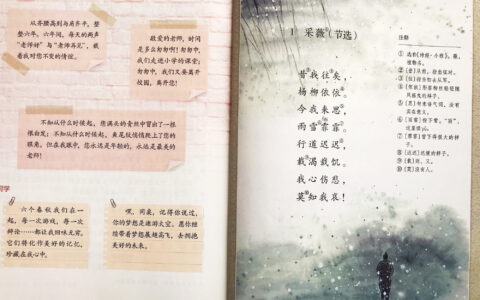 从齐腰高到与肩齐平,整
整六年。六年间,每天的两声
“老师好”与“老师再见”,载
着我对您不变的情谊。
敬爱的老师,时间
是多么匆匆啊!匆匆中,
我们走进小学的课堂;
匆匆中,我们又要离开
校园,离开您!
不知从什么时候起,您满头的青丝中冒出了一根
根白发;不知从什么时候起,鱼尾纹悄悄爬上了您的
眼角。但在我眼中,您永远是年轻的,永远是最美的
老师!
同学
六个春秋我们在一
起,每一次游戏,每一次
辩论……都让我回味无穷,
它们将化作美好的记忆,
珍藏在我心中。
嘿,同桌,记得你说过,
你的梦想是遨游太空。愿你继
续带着梦想展翅高飞,去拥抱
美好的未来。
1 采薇(节选)
昔我往矣,
杨柳依依。
今我来思,
雨雪霏霏。
行道迟迟,
载渴载饥。
我心伤悲,
莫知我哀!
注释
① 选自《诗经·小雅》。薇,
植物名。
② 〔昔〕从前,指出征时。
③ 〔往〕指当初去从军。
④ 〔依依〕形容柳丝轻柔随
风摇曳的样子。
⑤ 〔思〕句末语气词,没有
实在意义。
⑥ 〔雨雪〕指下雪。“雨”,
这里读yù。
⑦ 〔霏霏〕雪下得很大的样
子。
⑧ 〔迟迟〕迟缓的样子。
⑨ 〔载〕则,又。
⑩ 〔莫〕没有人。